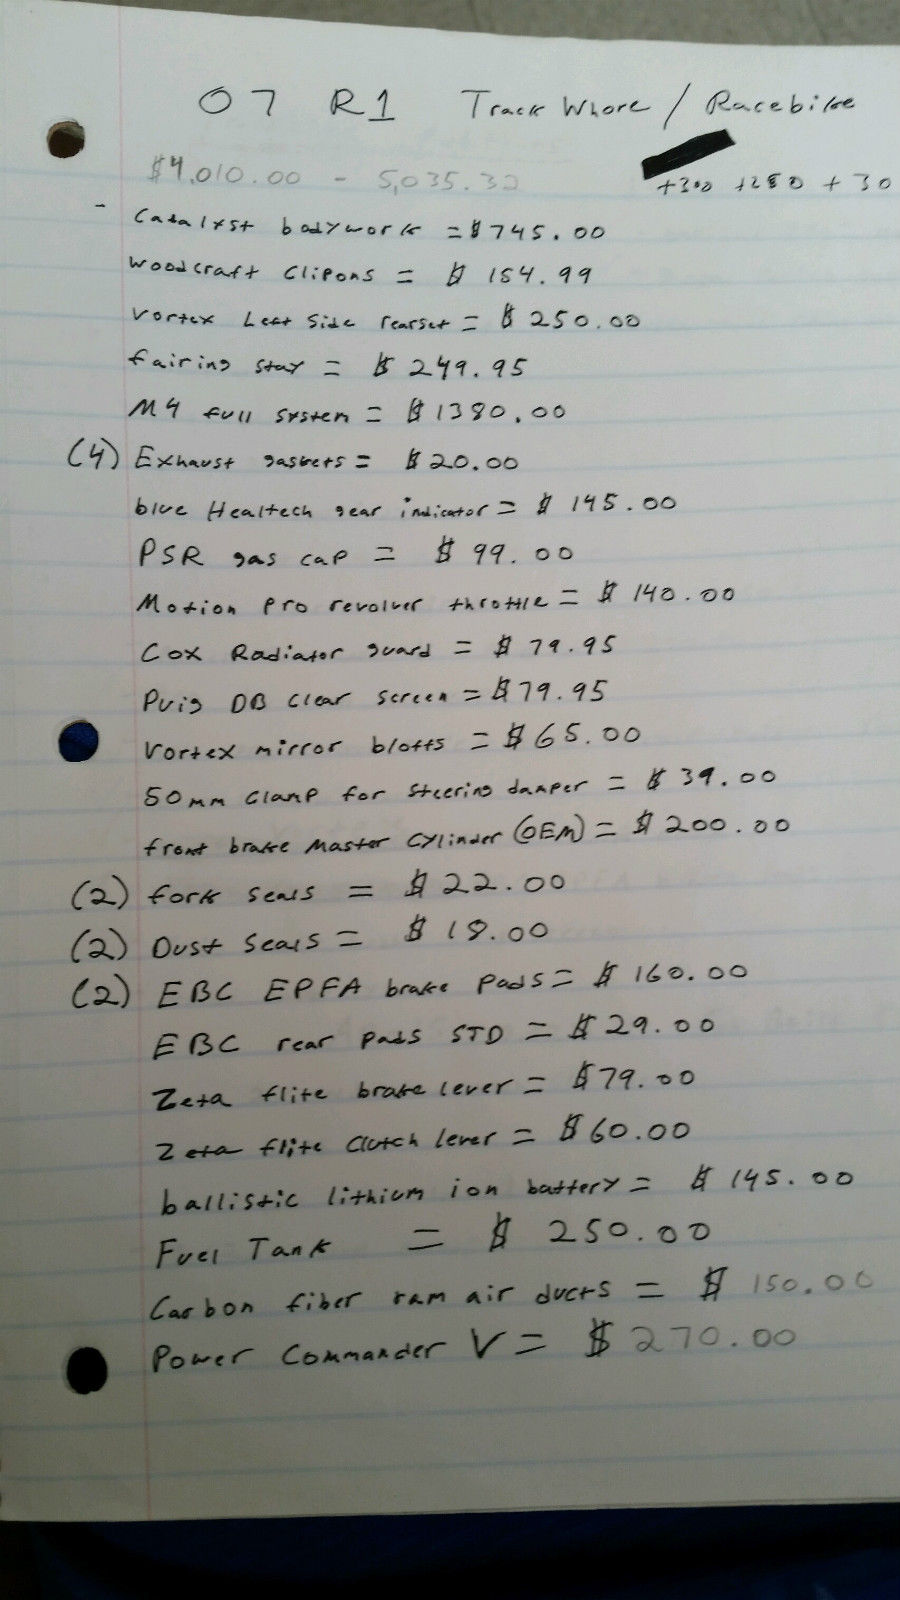 07 R1 Track Whore / Racebike
$4,010.00 - 5,035.32
+300 +250 + 30
- Catalyst bodywork = $745.00
Woodcraft Clipons = $ 154.99
Vortex Left Side rearset = $ 250.00
fairing stay = $ 249.95
M4 full system = $1380.00
(4) Exhaust gaskets = $20.00
blue Healtech gear indicator = $ 145.00
PSR gas cap = $ 99.00
Motion Pro revolver throttle = $ 140.00
Cox Radiator guard = $ 79.95
Puig DB Clear screen = $79.95
Vortex mirror bloffs = $65.00
50mm Clamp for Steering damper = $ 39.00
front brake Master Cylinder (OEM) = $ 200.00
(2) fork seals = $22.00
(2) Dust Seals = $ 18.00
(2) EBC EPFA brake Pads = $ 160.00
EBC rear pads STD = $29.00
Zeta flite brake lever = $79.00
Zeta flite Clutch lever = $60.00
ballistic lithium ion battery = $ 145.00
Fuel Tank = $ 250.00
Carbon fiber ram air ducts = $ 150.00
Power Commander V = $270.00